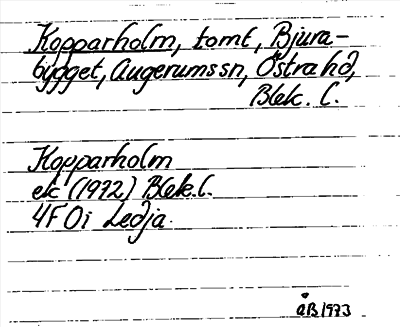 Kopparholm, tomt, Bjura-
bygget, Augerumssn, Östra hd,
Blek. l.
Kopparholm
ek (1972) Blek.l.
4F 0i Ledja
åB 1973